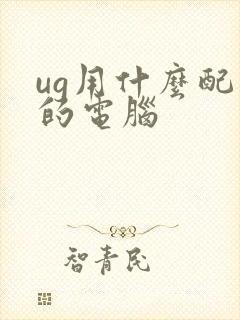 ug用什麼配
的電腦
智青民